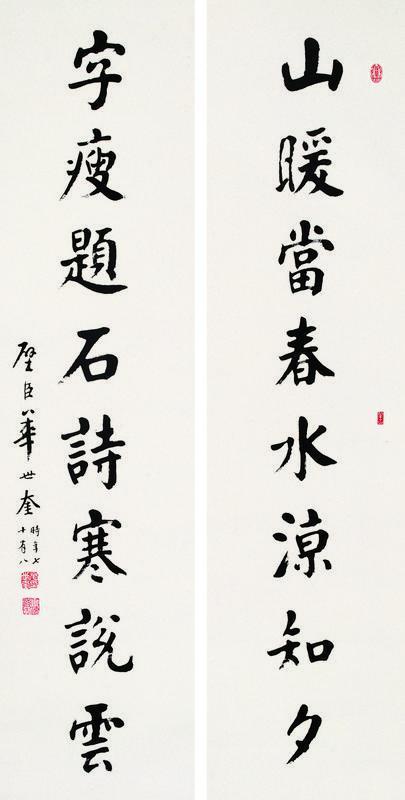 山暖當春水涼知夕
字瘦題石詩寒說雲
壁臣華世奎
時年七
十有八